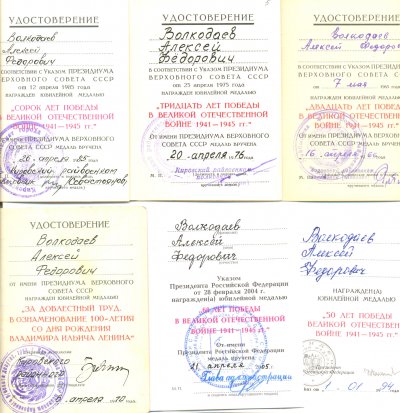 УДОСТОВЕРЕНИЕ
Волкодаев
Алексей
Федорович
В СООТВЕТСТВИИ С УКАЗОМ ПРЕЗИДИУМА
ВЕРХОВНОГО СОВЕТА СССР
от 12 апреля 1985 года
НАГРАЖДЕН ЮБИЛЕЙНОЙ МЕДАЛЬЮ
„СОРОК ЛЕТ ПОБЕДЫ
В ВЕЛИКОЙ ОТЕЧЕСТВЕННОЙ
ВОЙНЕ 1941—1945 гг."
ОТ ИМЕНИ ПРЕЗИДИУМА ВЕРХОВНОГО
СОВЕТА СССР МЕДАЛЬ ВРУЧЕНА
УДОСТОВЕРЕНИЕ
Волкодаев
Алексей
Федорович
В СООТВЕТСТВИИ С УКАЗОМ ПРЕЗИДИУМА
ВЕРХОВНОГО СОВЕТА СССР
от 25 апреля 1975 года
НАГРАЖДЕН ЮБИЛЕЙНОЙ МЕДАЛЬЮ
„ТРИДЦАТЬ ЛЕТ ПОБЕДЫ
В ВЕЛИКОЙ ОТЕЧЕСТВЕННОЙ
ВОЙНЕ 1941—1945 гг."
ОТ ИМЕНИ ПРЕЗИДИУМА ВЕРХОВНОГО
СОВЕТА СССР МЕДАЛЬ ВРУЧЕНА
20 апреля
УДОСТОВЕРЕНИЕ
Волкодаев
Алексей Федорович
В СООТВЕТСТВИИ С УКАЗОМ ПРЕЗИДИУМА
ВЕРХОВНОГО СОВЕТА СССР
7 мая
НАГРАЖДЕН ЮБИЛЕЙНОЙ МЕДАЛЬЮ
„ДВАДЦАТЬ ЛЕТ ПОБЕДЫ
В ВЕЛИКОЙ ОТЕЧЕСТВЕННОЙ
ВОЙНЕ 1941—1945 гг."
ОТ ИМЕНИ ПРЕЗИДИУМА ВЕРХОВНОГО
СОВЕТА СССР МЕДАЛЬ ВРУЧЕНА
УДОСТОВЕРЕНИЕ
Волкодаев
Алексей
Федорович
ОТ ИМЕНИ ПРЕЗИДИУМА ВЕРХОВНОГО
СОВЕТА СССР
НАГРАЖДЕН ЮБИЛЕЙНОЙ МЕДАЛЬЮ
„ЗА ДОБЛЕСТНЫЙ ТРУД.
В ОЗНАМЕНОВАНИЕ 100-ЛЕТИЯ
СО ДНЯ РОЖДЕНИЯ
ВЛАДИМИРА ИЛЬИЧА ЛЕНИНА"
Волкодаев
Алексей
Федорович
Указом
Президента Российской Федерации
от 28 февраля 2004 г.
награжден(а) юбилейной медалью
ЛЕТ ПОБЕДЫ
В ВЕЛИКОЙ ОТЕЧЕСТВЕННОЙ
ВОЙНЕ 1941—1945 гг."
От имени
Президента Российской Федерации
медаль вручена
21 апреля
Глава администрации
Волкодаев
Алексей
Федорович
НАГРАЖДЕН(А)
ЮБИЛЕЙНОЙ МЕДАЛЬЮ
„50 ЛЕТ ПОБЕДЫ
В ВЕЛИКОЙ ОТЕЧЕСТВЕННОЙ
ВОЙНЕ 1941—1945 гг."